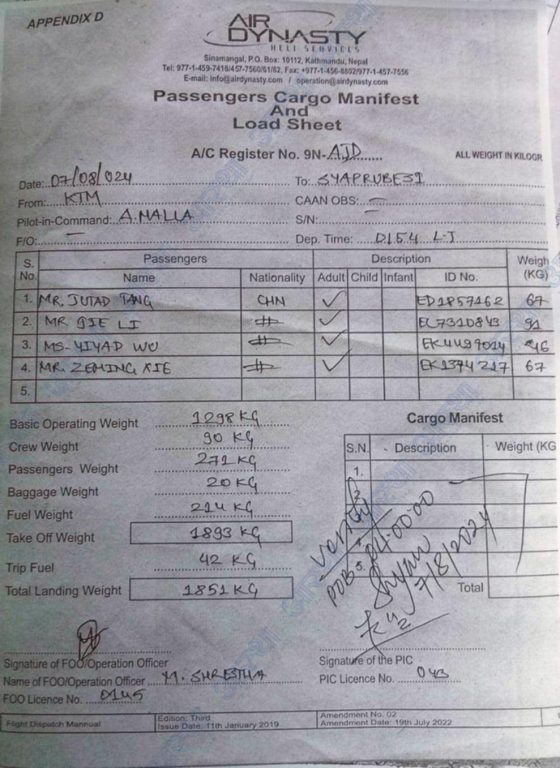 APPENDIX D
AIR
DYNASTY
HELI SERVICES
Sinamangal, P.O. Box: 10112, Kathmandu, Nepal
Tel: 977-1-459-7418/457-7560/61/62, Fax: +977-1-456-8802/977-1-457-7656
E-mail: info@airdynasty.com / operation@airdynasty.com
Passengers Cargo Manifest
And
Load Sheet
A/C Register No. 9N-AJD
ALL WEIGHT IN KILOGR
Date: 07/08/024 To: SYAPRUBESI
From: KTM CAAN OBS: —
Pilot-in-Command: A. MALLA S/N:
F/O: — Dep. Time: 0154 L-J
S. No. Passengers Description Weigh (KG)
Name Nationality Adult Child Infant ID No.
1. MR. JUTAD TANG CHN ✓ ED1857162 67
2. MR JIE LI -||- ✓ EL7310843 91
3. MS-YIYAD WU -||- ✓ EK4497014 46
4. MR. ZEMING XIE -||- ✓ EK1394217 67
5.
Basic Operating Weight 1298 KG
Crew Weight 90 KG
Passengers Weight 271 KG
Baggage Weight 20 KG
Fuel Weight 214 KG
Take Off Weight 1893 KG
Trip Fuel 42 KG
Total Landing Weight 1851 KG
Cargo Manifest
S.N. Description Weight (KG
1.
5.
Total
7/8/2024
Signature of FOO/Operation Officer
Name of FOO/Operation Officer M. SHRESTHA
FOO Licence No. 0145
Signature of the PIC
PIC Licence No. 043
Flight Dispatch Mannual
Edition: Third
Issue Date: 11th January 2019
Amendment No. 02
Amendment Date: 19th July 2022